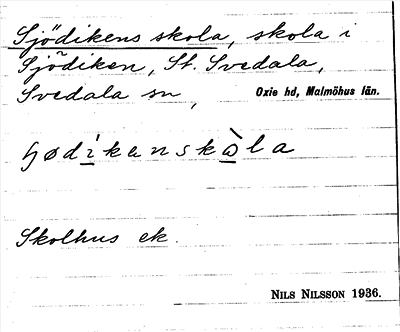 Sjödikens skola, skola i
Sjödiken, St. Svedala,
Svedala sn, Oxie hd, Malmöhus län.
Skolhus ek.
NILS NILSSON 1936.